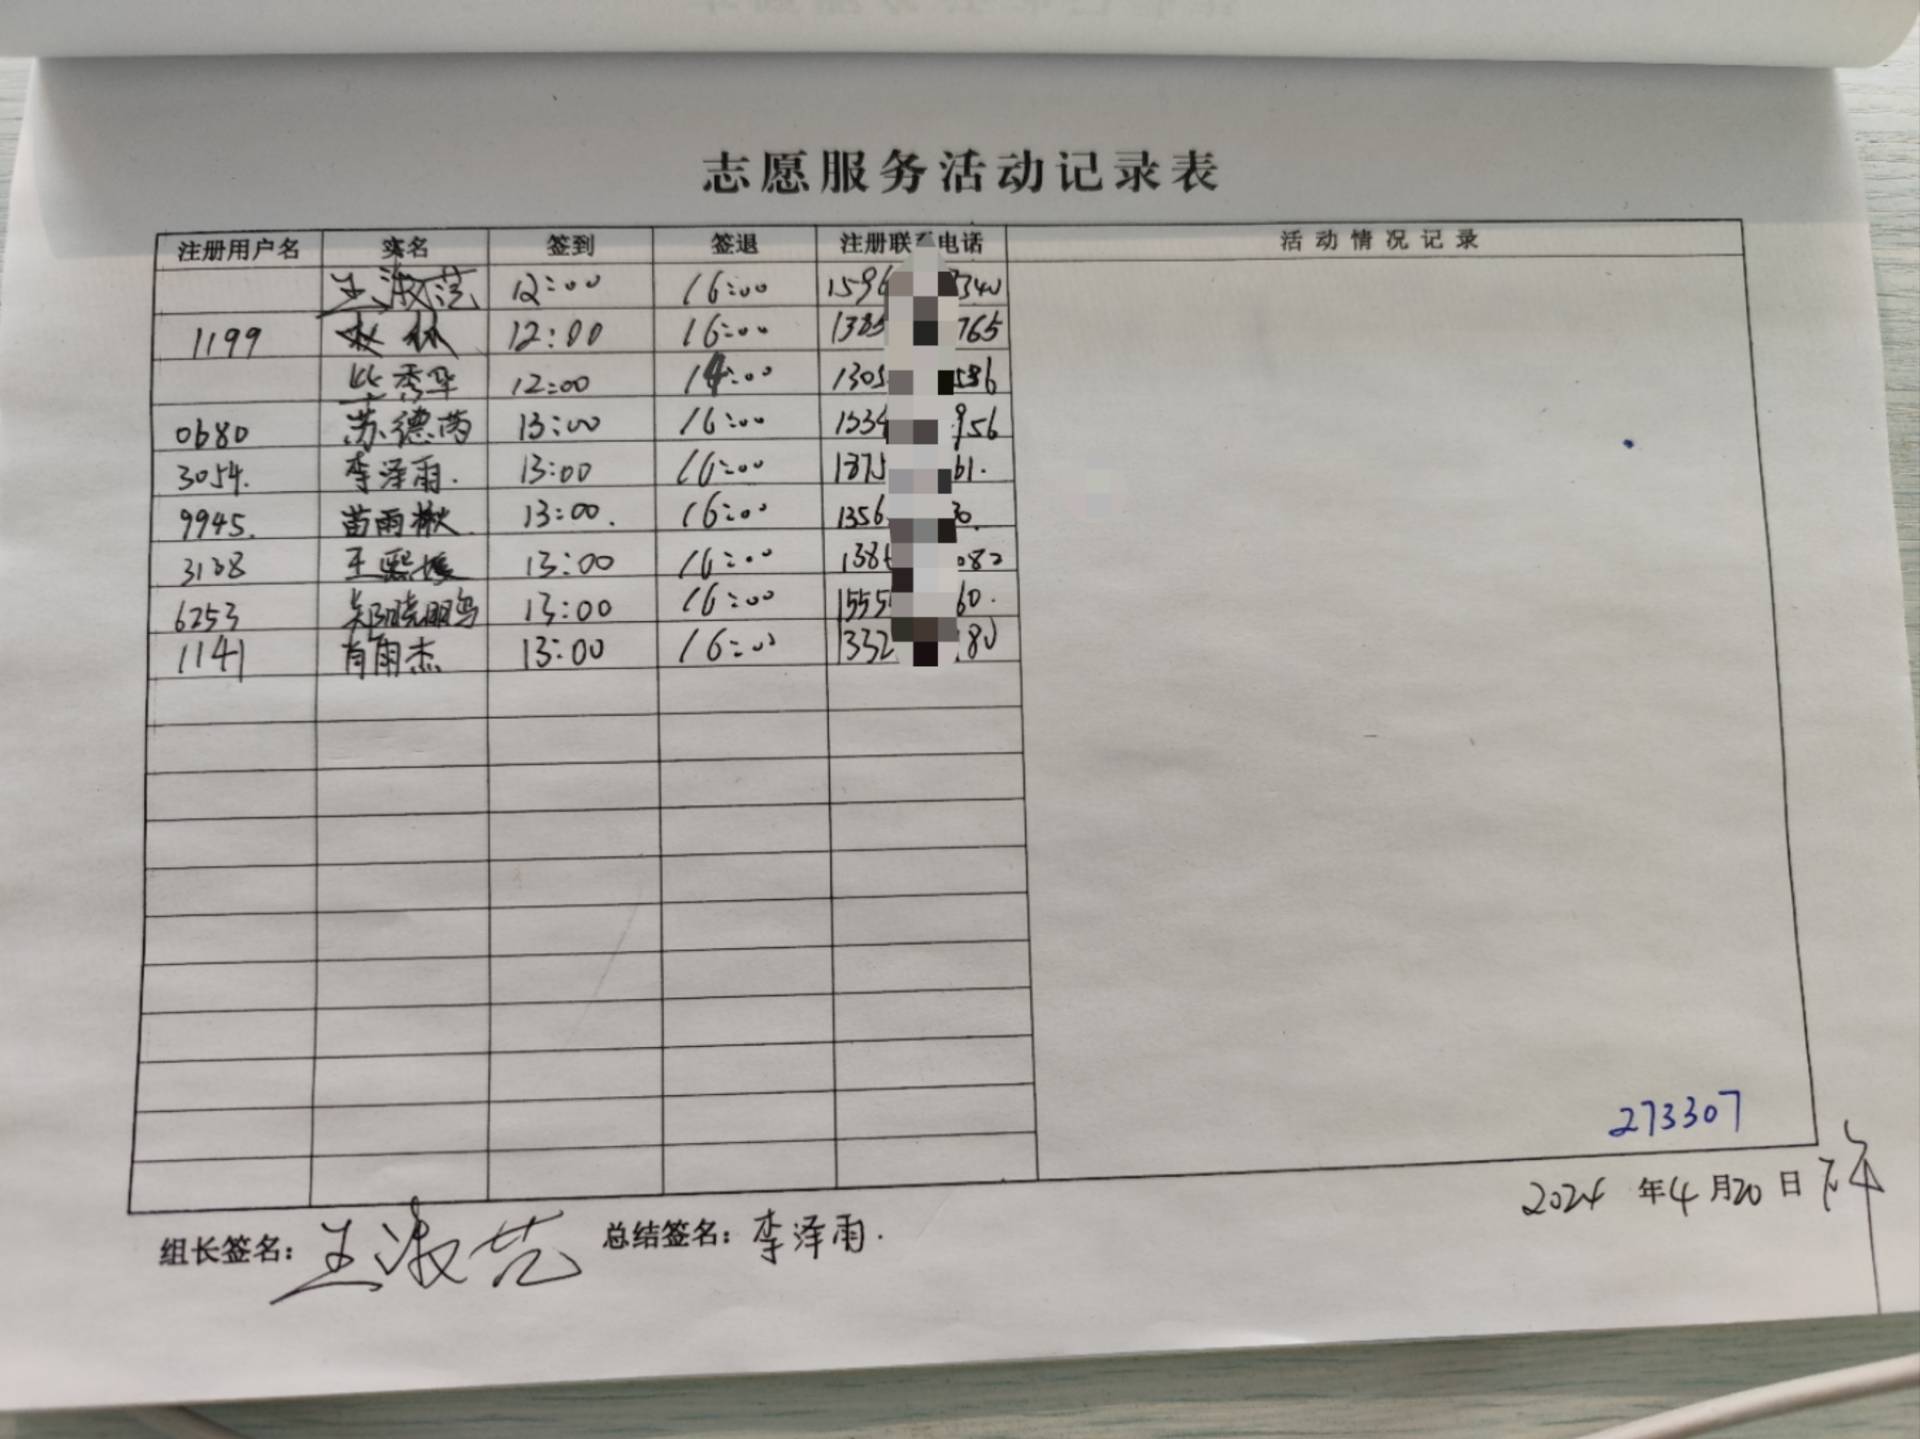 志愿服务活动记录表
注册用户名 实名 签到 签退 注册联系电话 活动情况记录
王淑艺 12:00 16:00 1596 340
1199 12:00 16:00 1385 765
毕秀华 12:00 14:00 1305 586
0680 苏德芮 13:00 16:00 1334 956
3054. 李泽雨. 13:00 16:00 1875 61.
9945. 苗雨楸. 13:00. 16:00 1356 30.
3138 王熙媛 13:00 16:00 138 082
6253 郑晓鹏 13:00 16:00 1555 60.
1141 肖雨杰 13:00 16:00 1332 80
273307
2024 年4月20日 下午
组长签名: 王淑艺 总结签名: 李泽雨.